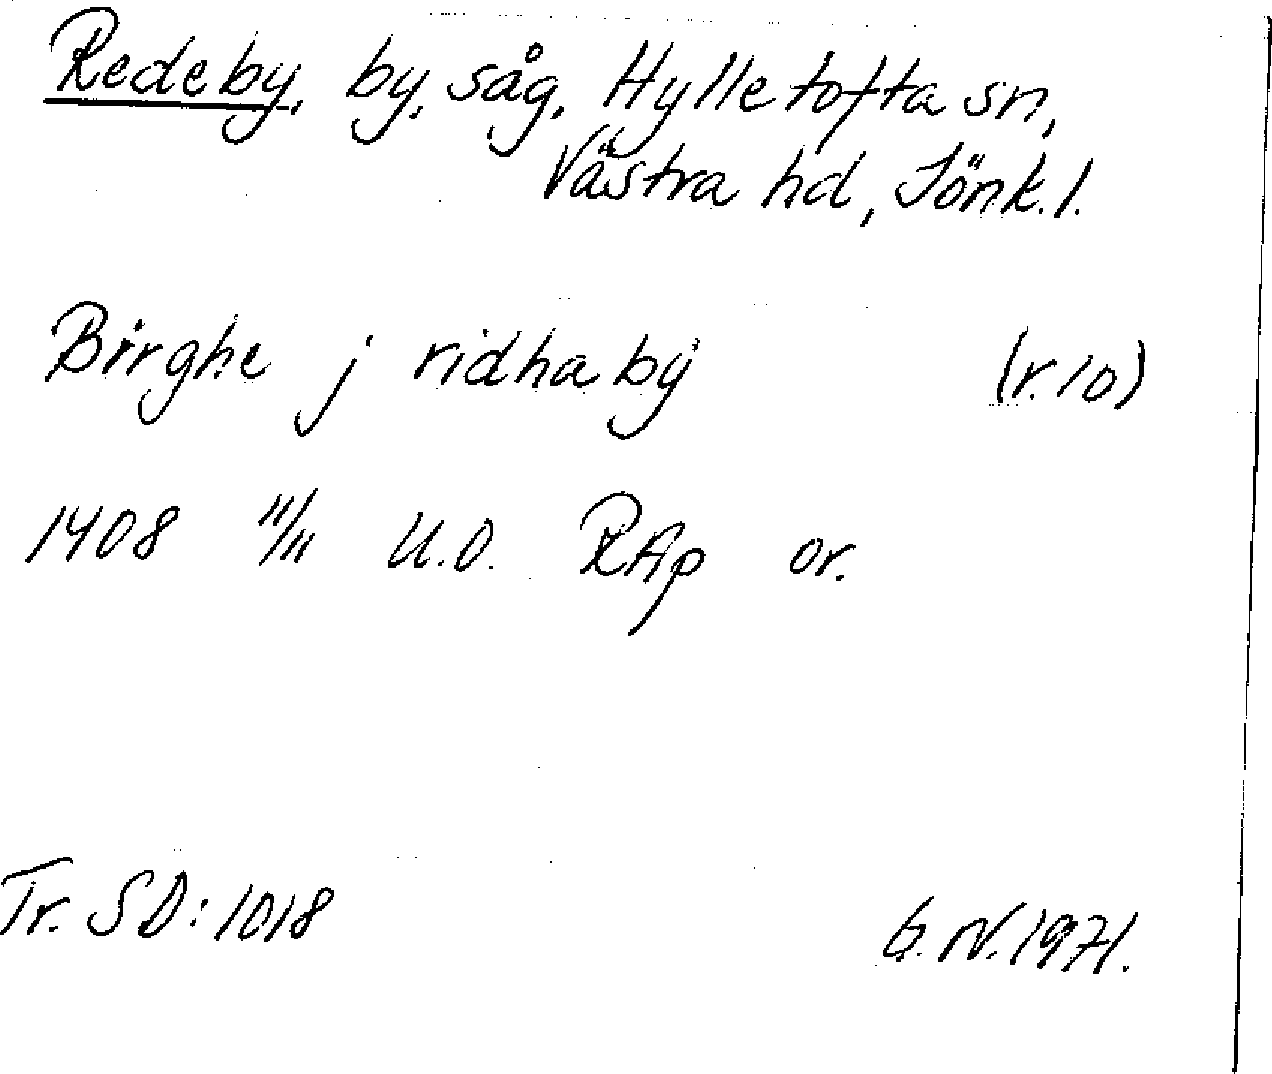 Redeby, by, såg, Hylletofta sn,
Västra hd, Jönk. l.
Birghe j ridhaby (r. 10)
1408 11/11 U.O. RAp or.
Tr. SD: 1018 G.N. 1971.